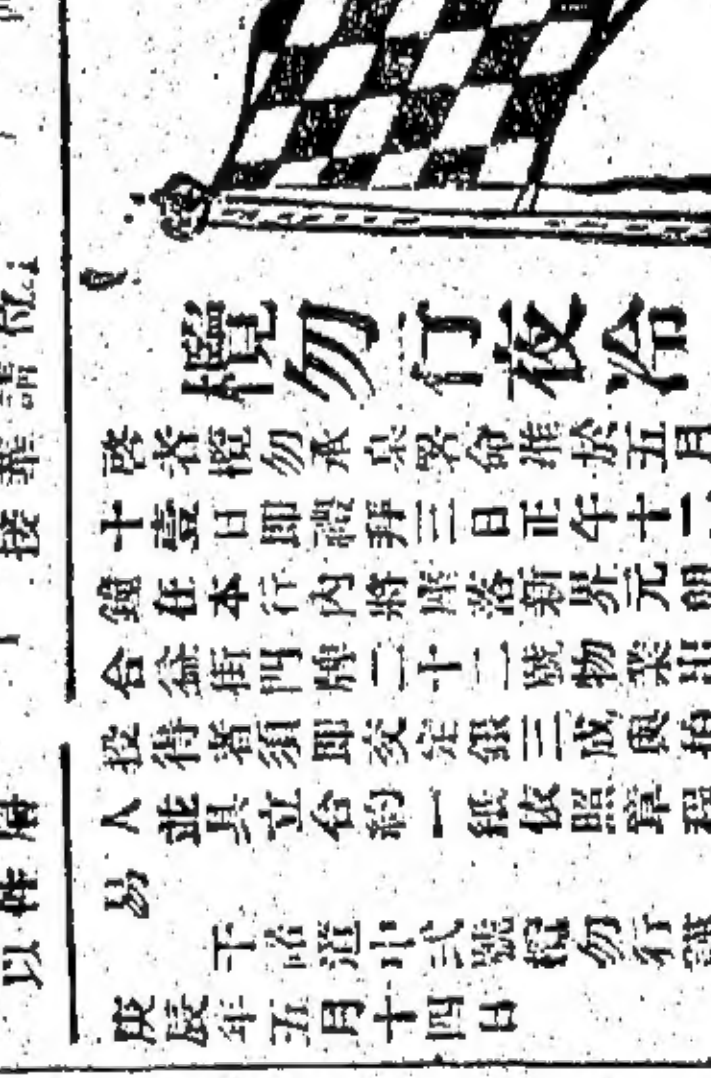 欖勿行夜冷
啓者欖勿承命准於五月
十壹日即禮拜三日正午十二
鐘在本行內將座落新界元朗
合益街門牌二十二號物業出
投得者須即交定銀三成與拍
人並具立合約一紙依照章程
易
干諾道中弍號欖勿行謹
庚辰年五月十四日